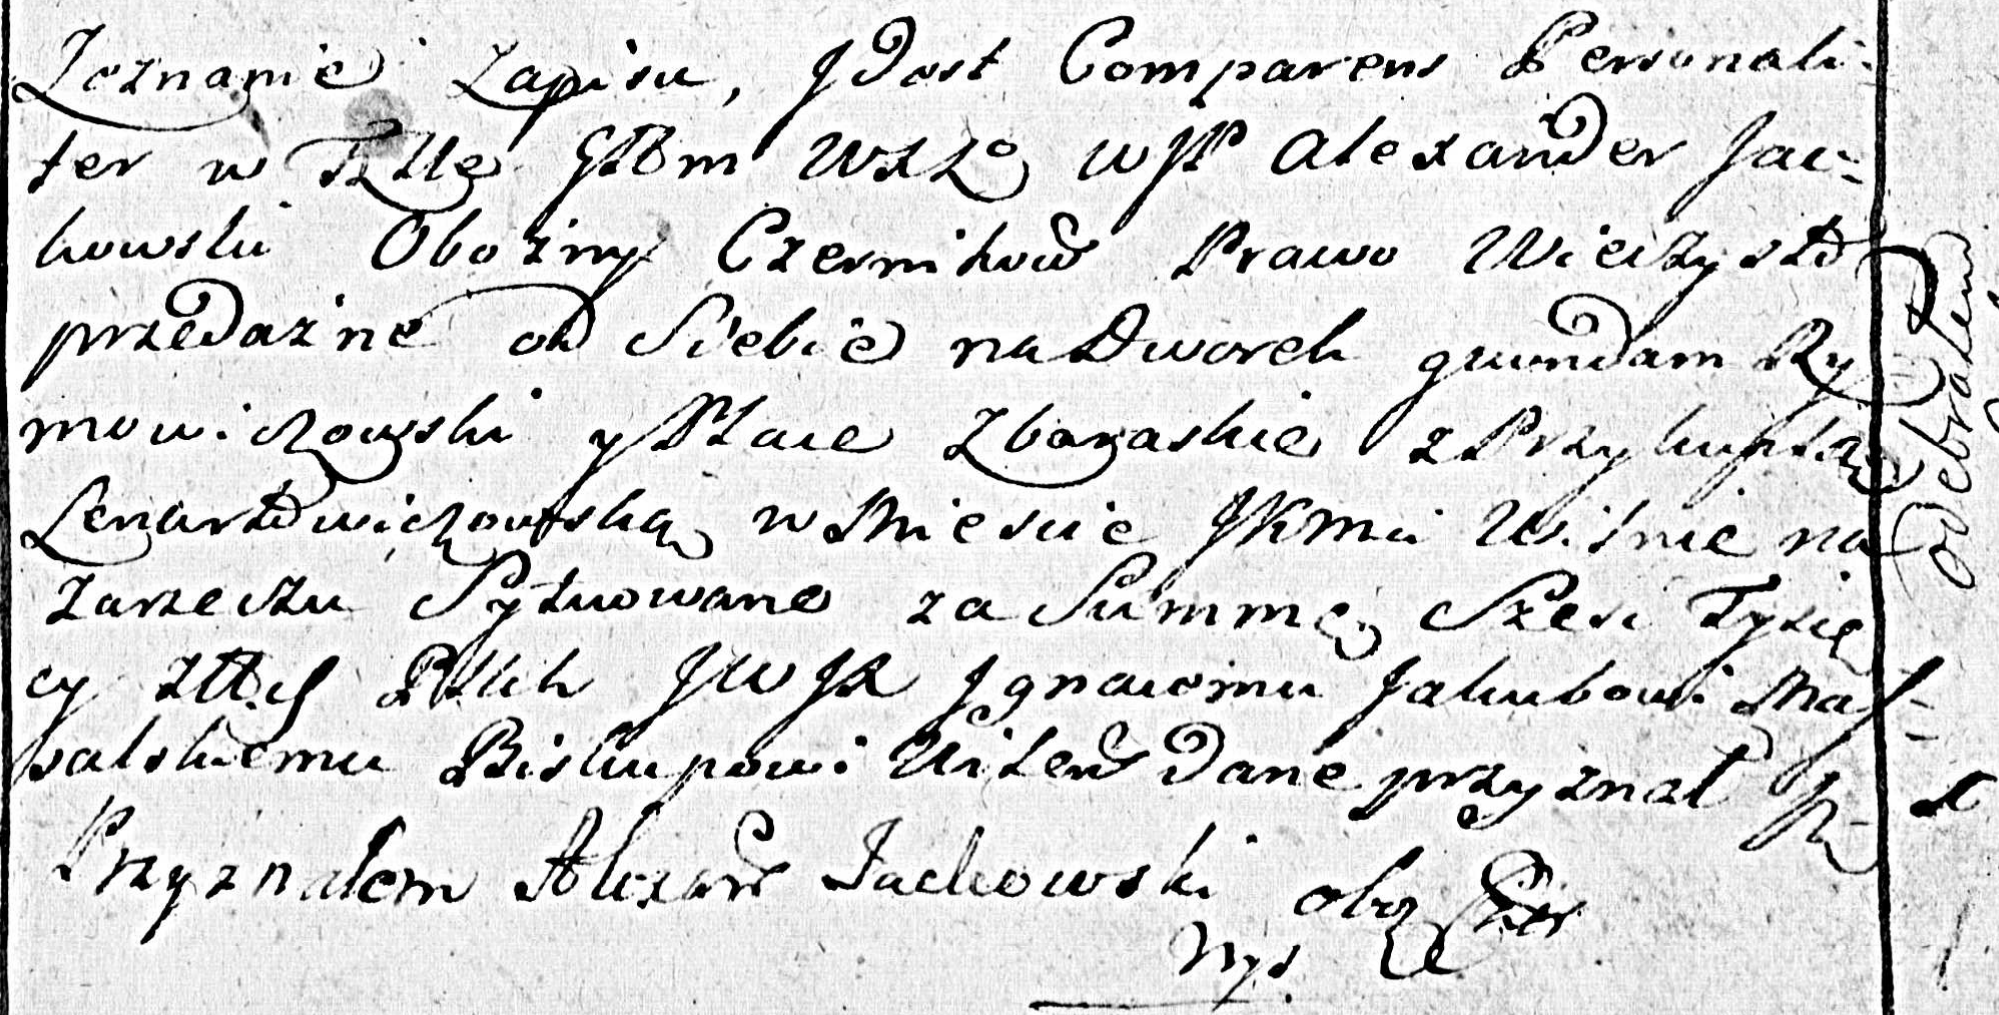 Zeznanie Zapisu, J Dost Comparens Personali-
ter w WXLo WJP Alexander Jac-
kowski Obozny Czernihow Prawo Wieczysto
przedazne od Siebie na Dworek quondam Ry
mowiczowski y Place Zbaraskie z Przykupłą
Lenartowiczowską w Miescie JKMci Wilnie na
zarzeczu Sytuowane za Summę Szesc Tysię
cy Złłch Plskch JW JX Ignacemu Jakubowi Mas-
salskiemu Biskupowi Wilen Dane przyznał
Przyznałem Alexan Jackowski oboz Czer
mp
odebrałem